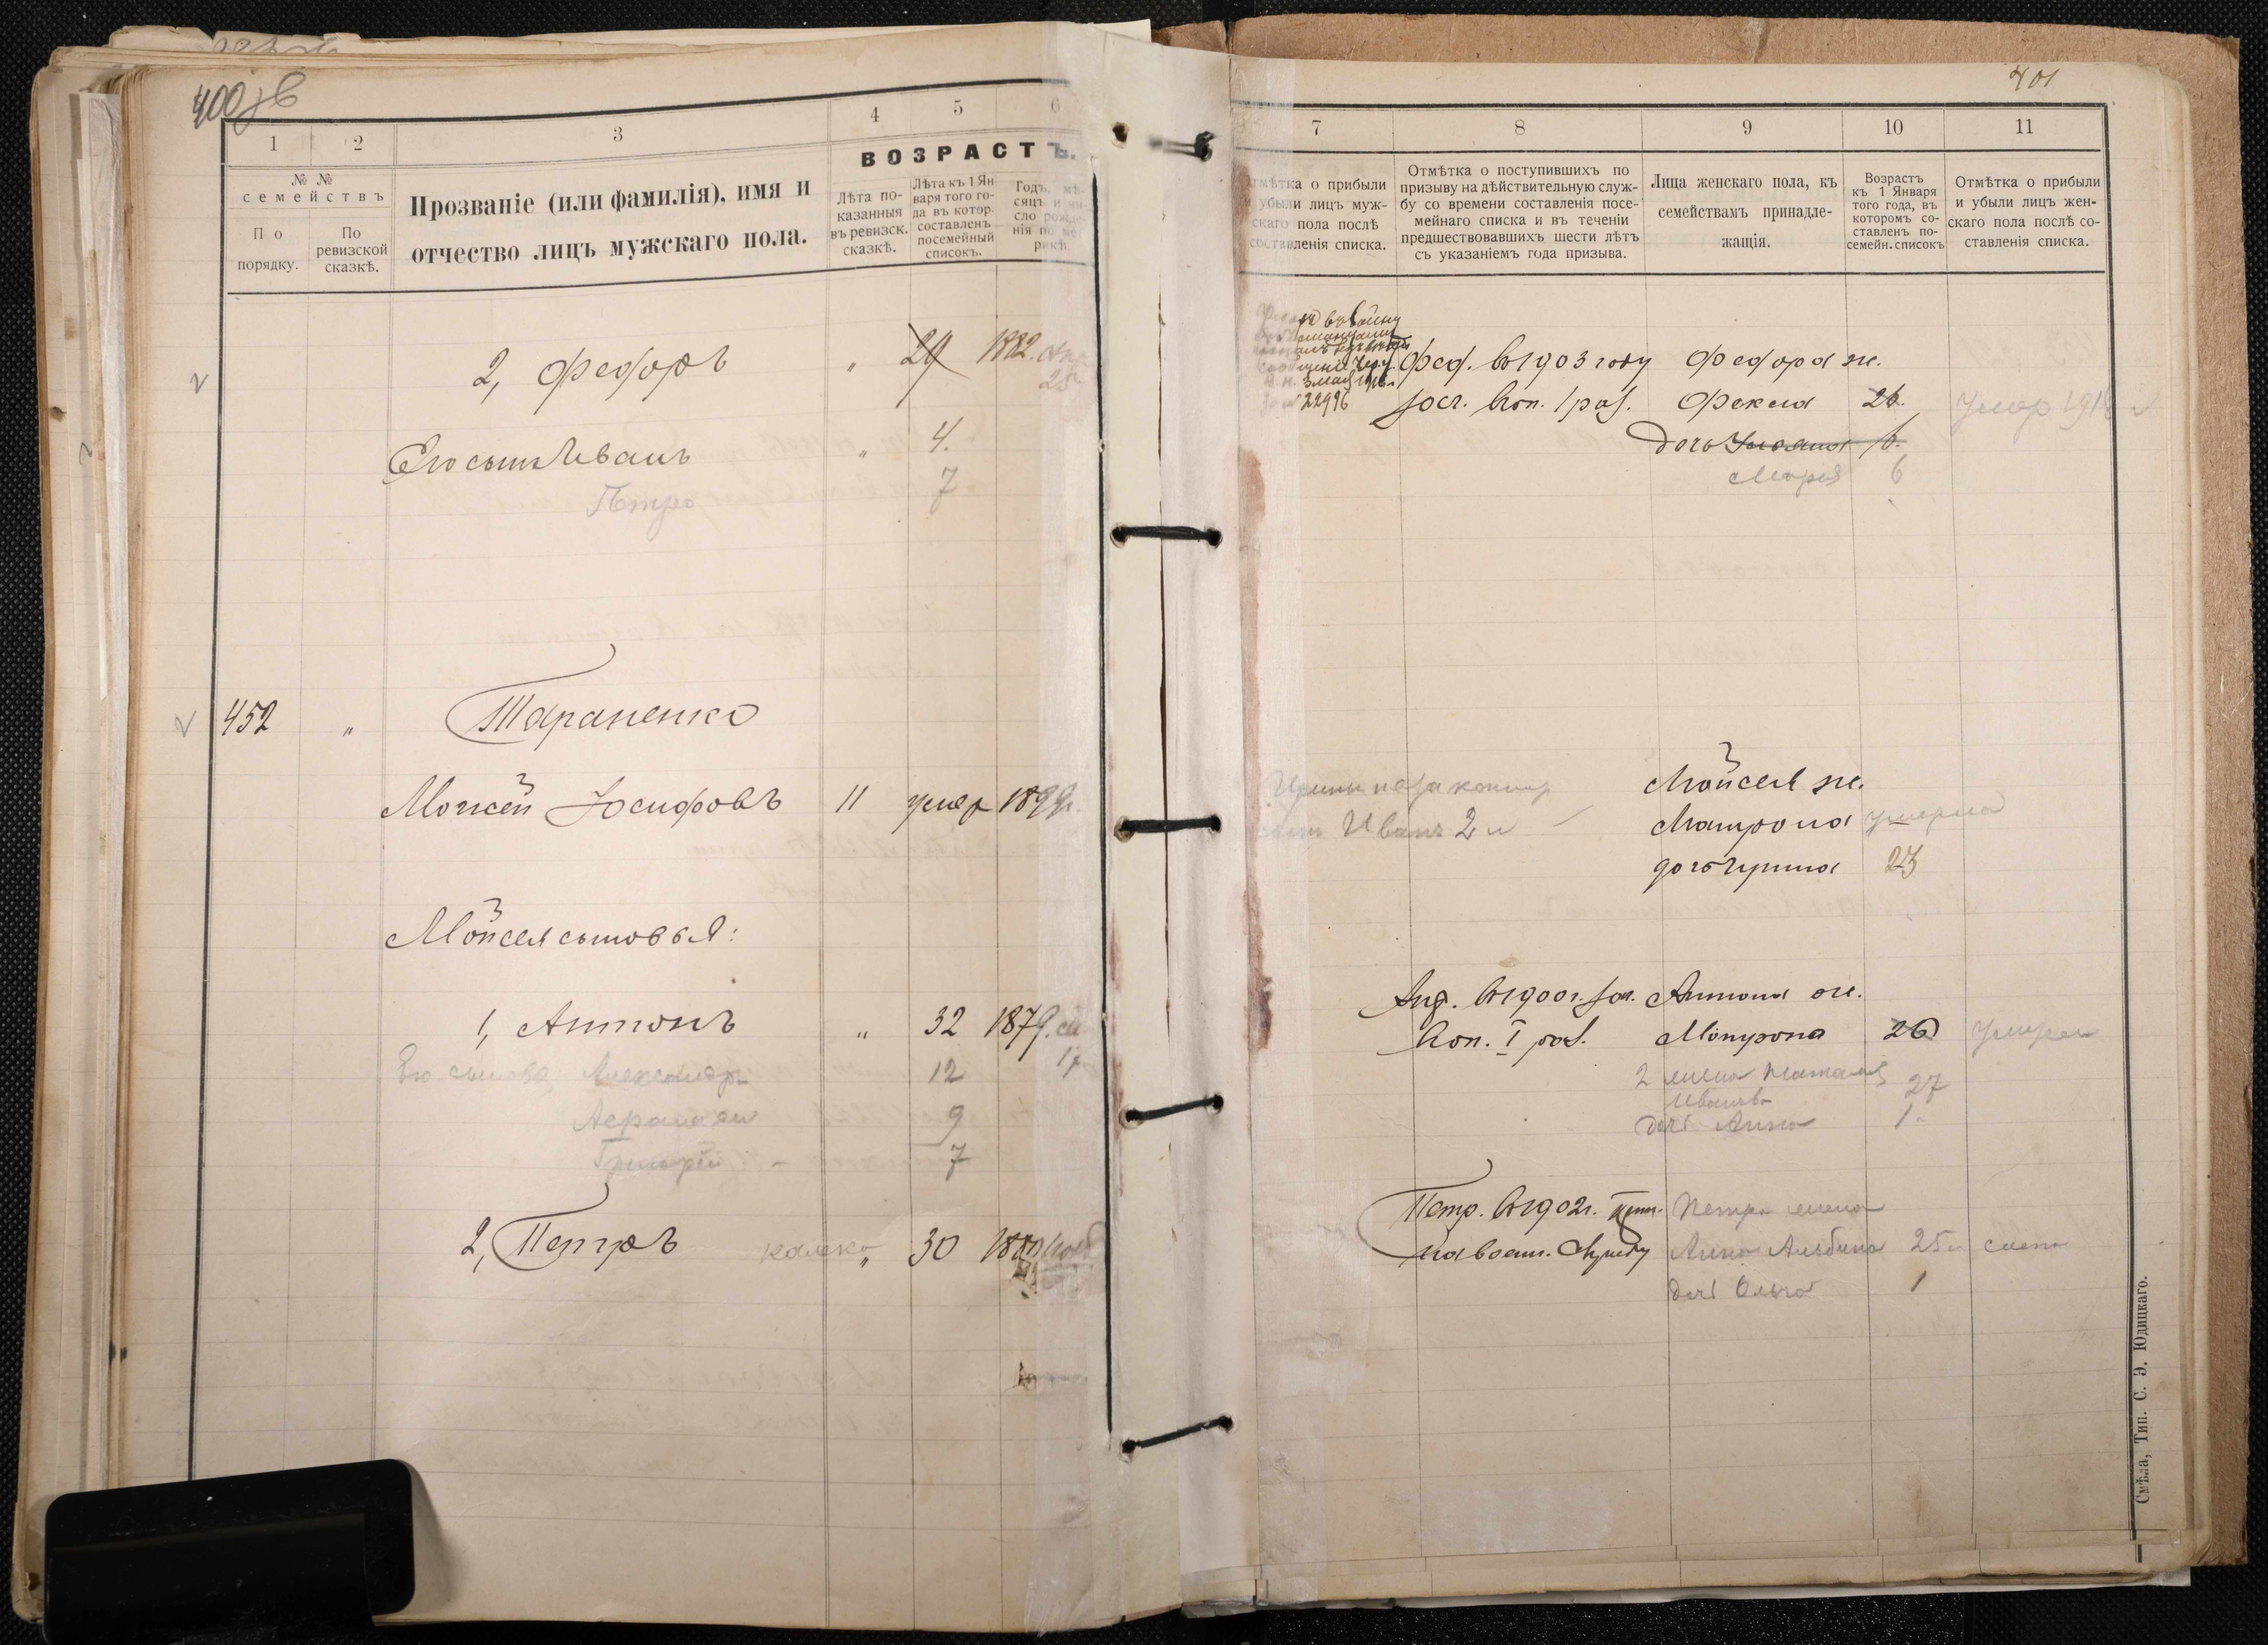 400 зв
1
2
3
4
5
6
№ №
семействъ
По
порядку.
По
ревизской
сказкѣ.
Прозваніе (или фамилія), имя и
отчество лицъ мужскаго пола.
ВОЗРАСТЪ.
Лѣта по-
казанныя
въ ревизск.
сказкѣ.
Лѣта къ 1 Ян
варя того го-
да въ котор.
составленъ
посемейный
списокъ.
Годъ, мѣ-
сяцъ и чи-
сло рожде-
нія по ме-
рикѣ.
2, Федоръ " 29 1882.
25
Его сынъ Иванъ " 4.
Петро 7
452 " Тараненко
Моисей Іосифовъ 11 умер 1899г.
Моисея сыновья:
1, Антонъ " 32 1879.
Его сынова Александр 12
9
Григорій - 7
2, Петръ калека " 30 1880
401
7
8
9
10
11
Отмѣтка о прибыли
и убыли лицъ муж-
скаго пола послѣ
составленія списка.
Отмѣтка о поступившихъ по
призыву на дѣйствительную служ-
бу со времени составленія посе-
мейнаго списка и въ теченіи
предшествовавшихъ шести лѣтъ
съ указаніемъ года призыва.
Лица женскаго пола, къ
семействамъ принадле-
жащія.
Возрастъ
къ 1 Января
того года, въ
которомъ со-
ставленъ по-
семейн. списокъ
Отмѣтка о прибыли
и убыли лицъ жен-
скаго пола послѣ со-
ставленія списка.
въ войну
3 мая 1916 г.
22996
Фед. въ 1903 году Федора ж.
зач. въ оп. 1 раз. Фекла 26. умер
дочь Ульяна 6.
Марія 6
Моисея ж.
Ирины незакон
сынъ Иванъ 2 л Матрона умерла
дочь Ирина 23
Ант. въ 1900г. зач. Антона ж.
въ оп. I раз. Матрона 26
2 жена Наталія 27
Иванова
дочь Анна 1
Петр. въ 1902г. прин. Петра жена
на воен. службу Анна Альбина 25
дочь Ольга 1
Смѣла, Тип. С. Э. Юдицкаго.